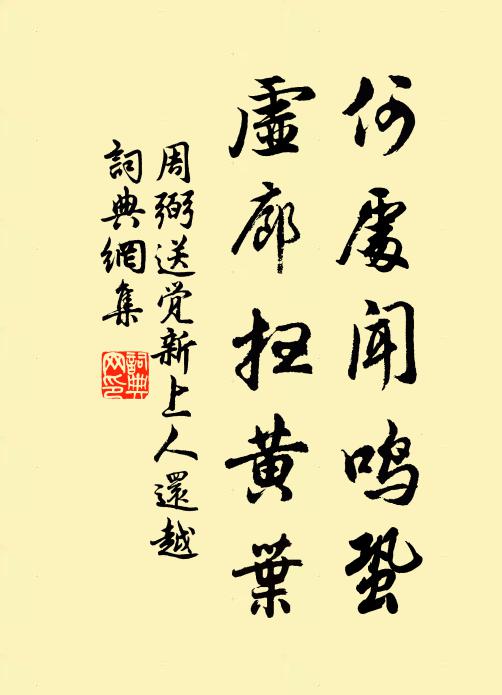 何處聞鳴蛩
虛廊掃黃葉
周弼送覚新上人還越
詞典網集
詞典网印